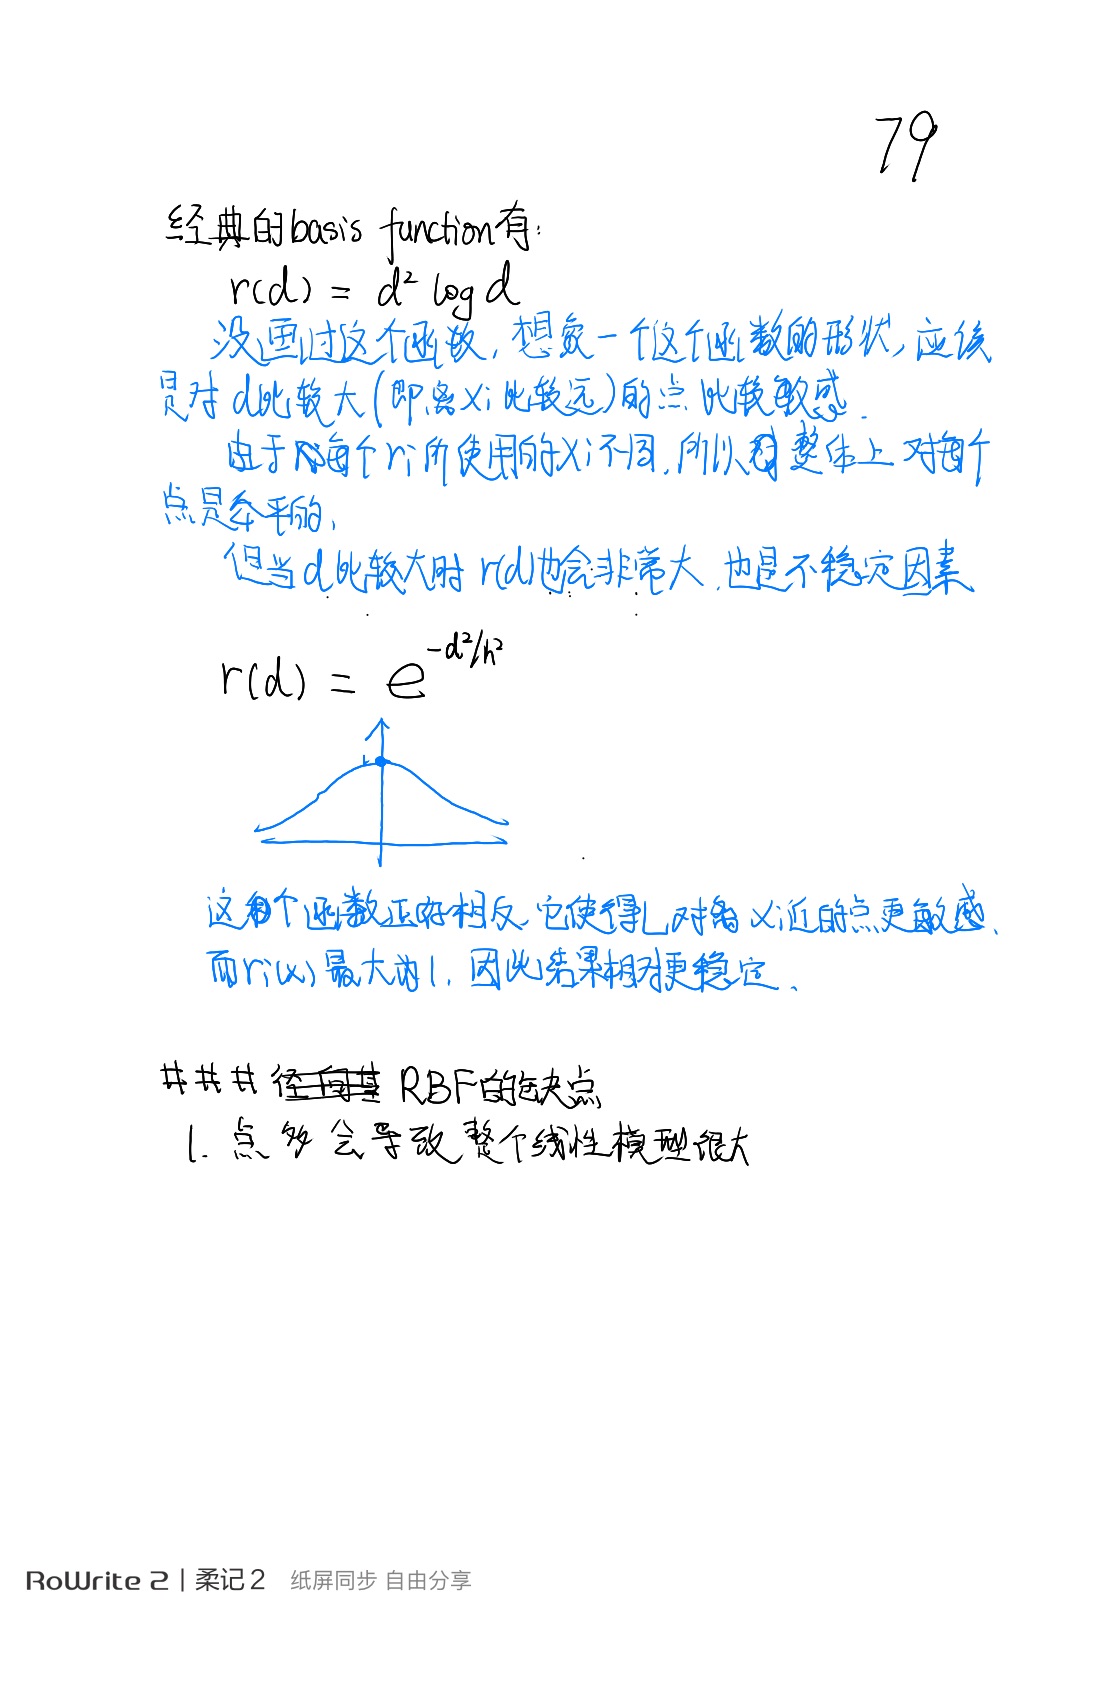 79
经典的basis function有:
r(d) = d² log d
没画过这个函数,想象一个这个函数的形状,应该
是对d比较大(即离xi比较远)的点比较敏感.
由于每个ri所使用的xi不同,所以整体上对每个
点是公平的,
但当d比较大时r(d)也会非常大,也是不稳定因素
r(d) = e^{-d²/h²}
1
这个函数正好相反,它使得L对离xi近的点更敏感、
而ri(x)最大为1,因此结果相对更稳定、
### RBF的缺点
1. 点多会导致整个线性模型很大
RoWrite 2 | 柔记2 纸屏同步 自由分享